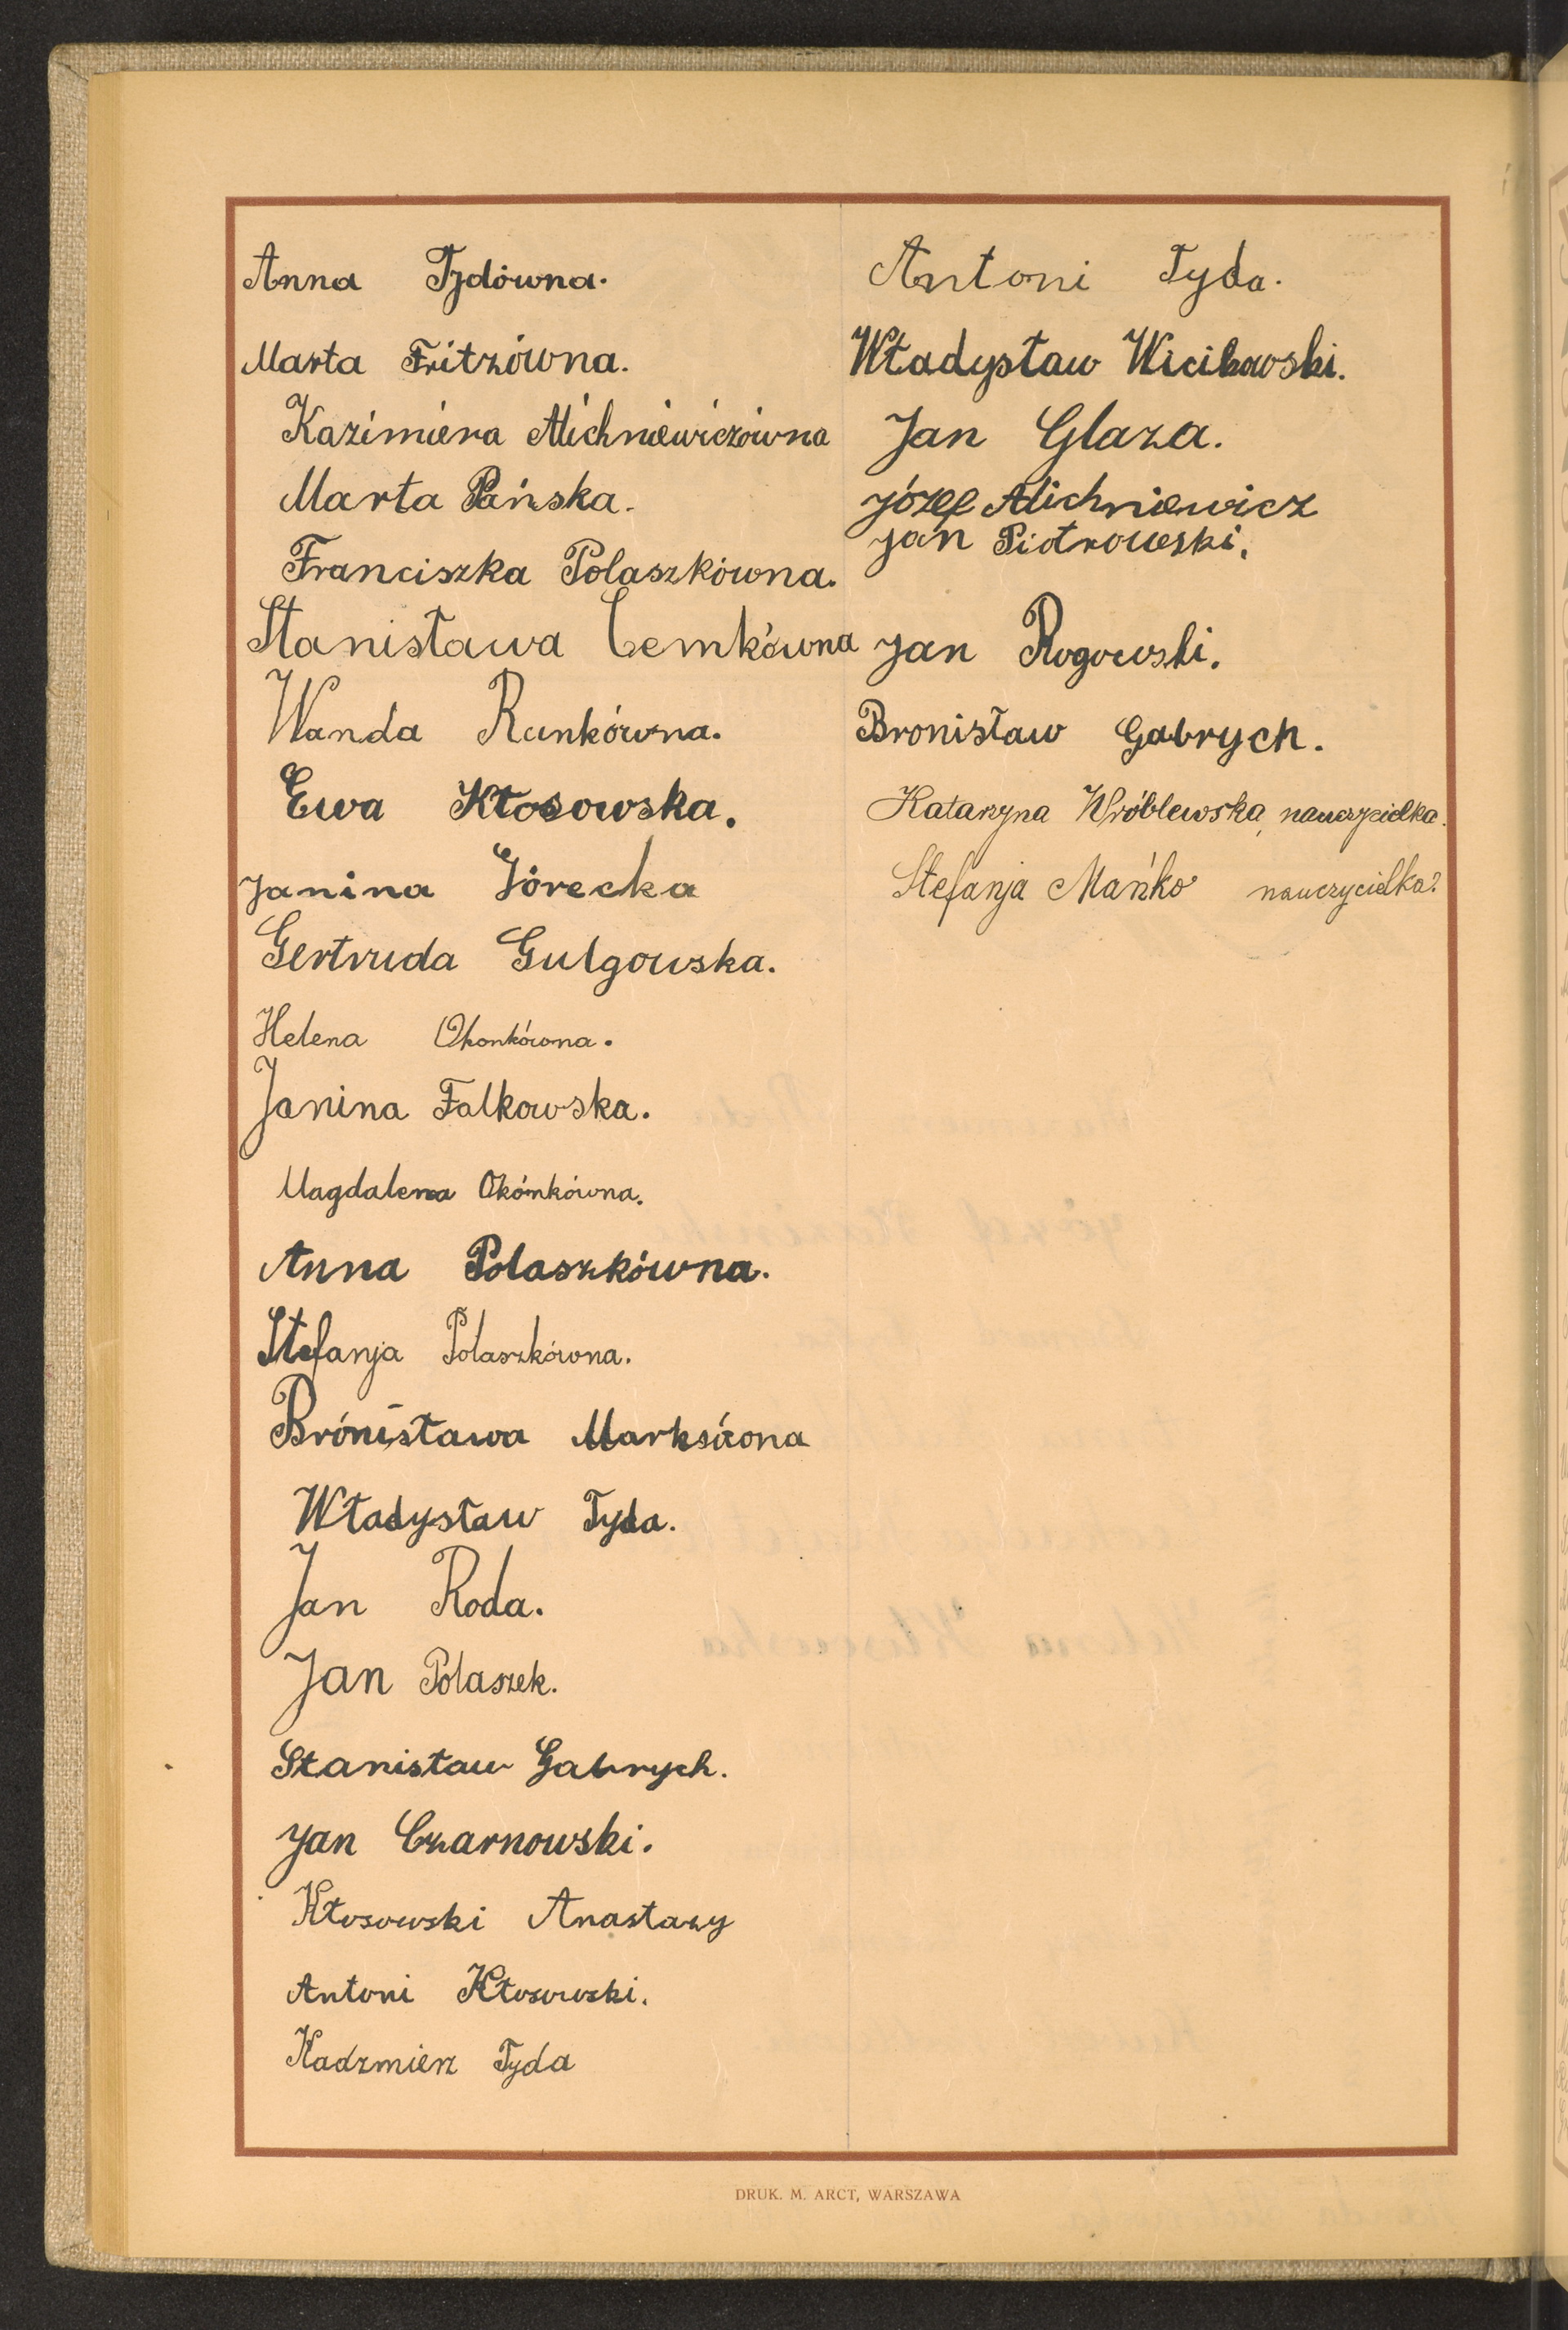 Anna Tydówna.
Marta Fritzówna.
Kazimiera Michniewiczówna
Marta Pańska.
Franciszka Polaszkówna.
Stanisława Lemkówna
Wanda Runkówna.
Ewa Kłosowska.
Janina Górecka
Gertruda Gulgowska.
Helena Okonkówna.
Janina Falkowska.
Magdalena Okónkówna.
Anna Polaszkówna.
Stefanja Polaszkówna.
Brónisława
Władysław Tyda.
Jan Roda.
Jan Polaszek.
Stanisław Gabrych.
Jan Czarnowski.
Kłosowski Anastazy
Antoni Kłosowski.
Kadzmierz Tyda
Antoni Tyda.
Władysław
Jan Glaza.
Józef Michniewicz
Jan Piotrowski.
Jan Rogowski.
Bronisław Gabrych.
Katarzyna Wróblewska, nauczycielka.
Stefanja Mańko nauczycielka.
DRUK. M. ARCT, WARSZAWA